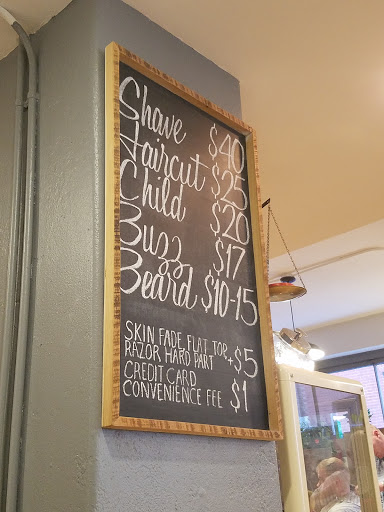 Shave $40
Haircut $25
Child $20
Buzz $17
Beard $10-15
SKIN FADE, FLAT TOP,
RAZOR, HARD PART +$5
CREDIT CARD
CONVENIENCE FEE $1